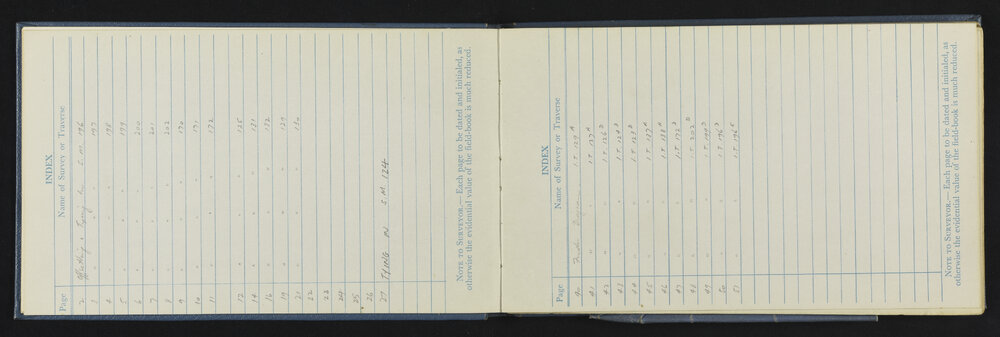 INDEX
Page Name of Survey or Traverse
2 S.M. 196
3 " " " 197
4 " " " 198
5 " " " 199
6 " " " 200
7 " " " 201
8 " " " 202
9 " " " 170
10 " " " 171
11 " " " 172
13 " " "
14 " " " 131
16 " " " 132
19 " " " 129
21 " " " 130
22
23
24
25
26
27 S.M. 124
NOTE TO SURVEYOR.—Each page to be dated and initialed, as
otherwise the evidential value of the field-book is much reduced.
INDEX
Page Name of Survey or Traverse
40 I.T. 129A
41 " " I.T. 137A
42 " " I.T. 126D
43 " " I.T. 124D
44 " " I.T. 123D
45 " " I.T. 187A
46 " " I.T. 188A
47 " " I.T. 172D
48 " " I.T. 202D
49 " " I.T. 199D
50 " " I.T. 196D
51 " " I.T. 196E
NOTE TO SURVEYOR.—Each page to be dated and initialed, as
otherwise the evidential value of the field-book is much reduced.